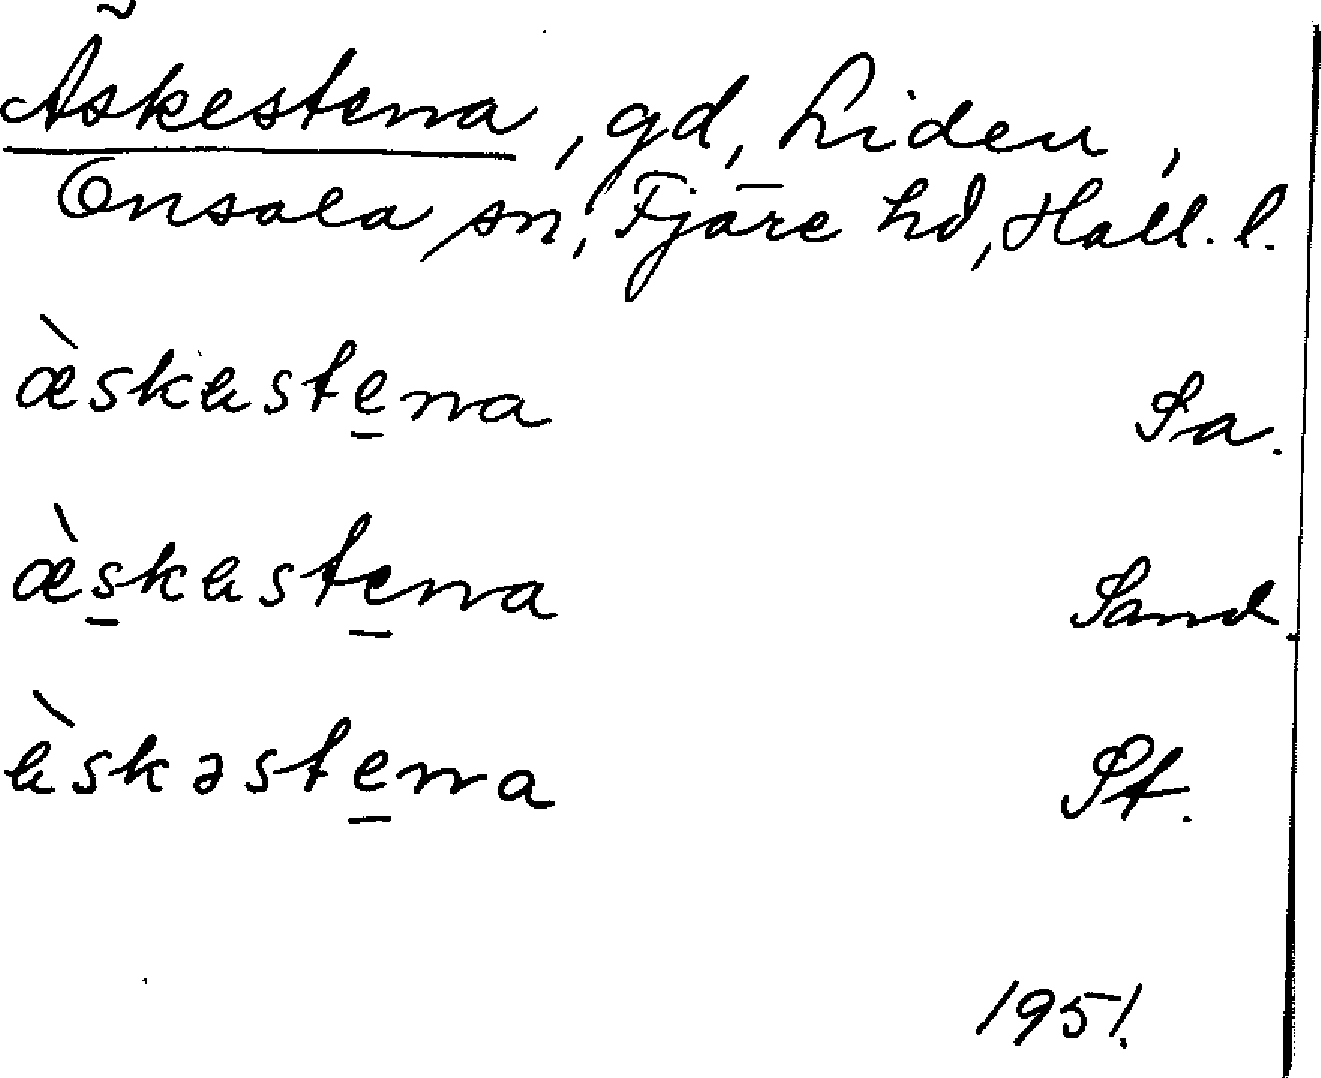 Äskestenna, gd, Liden,
Onsala sn, Fjäre hd, Hall. l.
æ̀skɐste̱nna Sa.
æ̀s̱kɐste̱nna Sand.
ɐ̀skəste̱nna St.
1951.